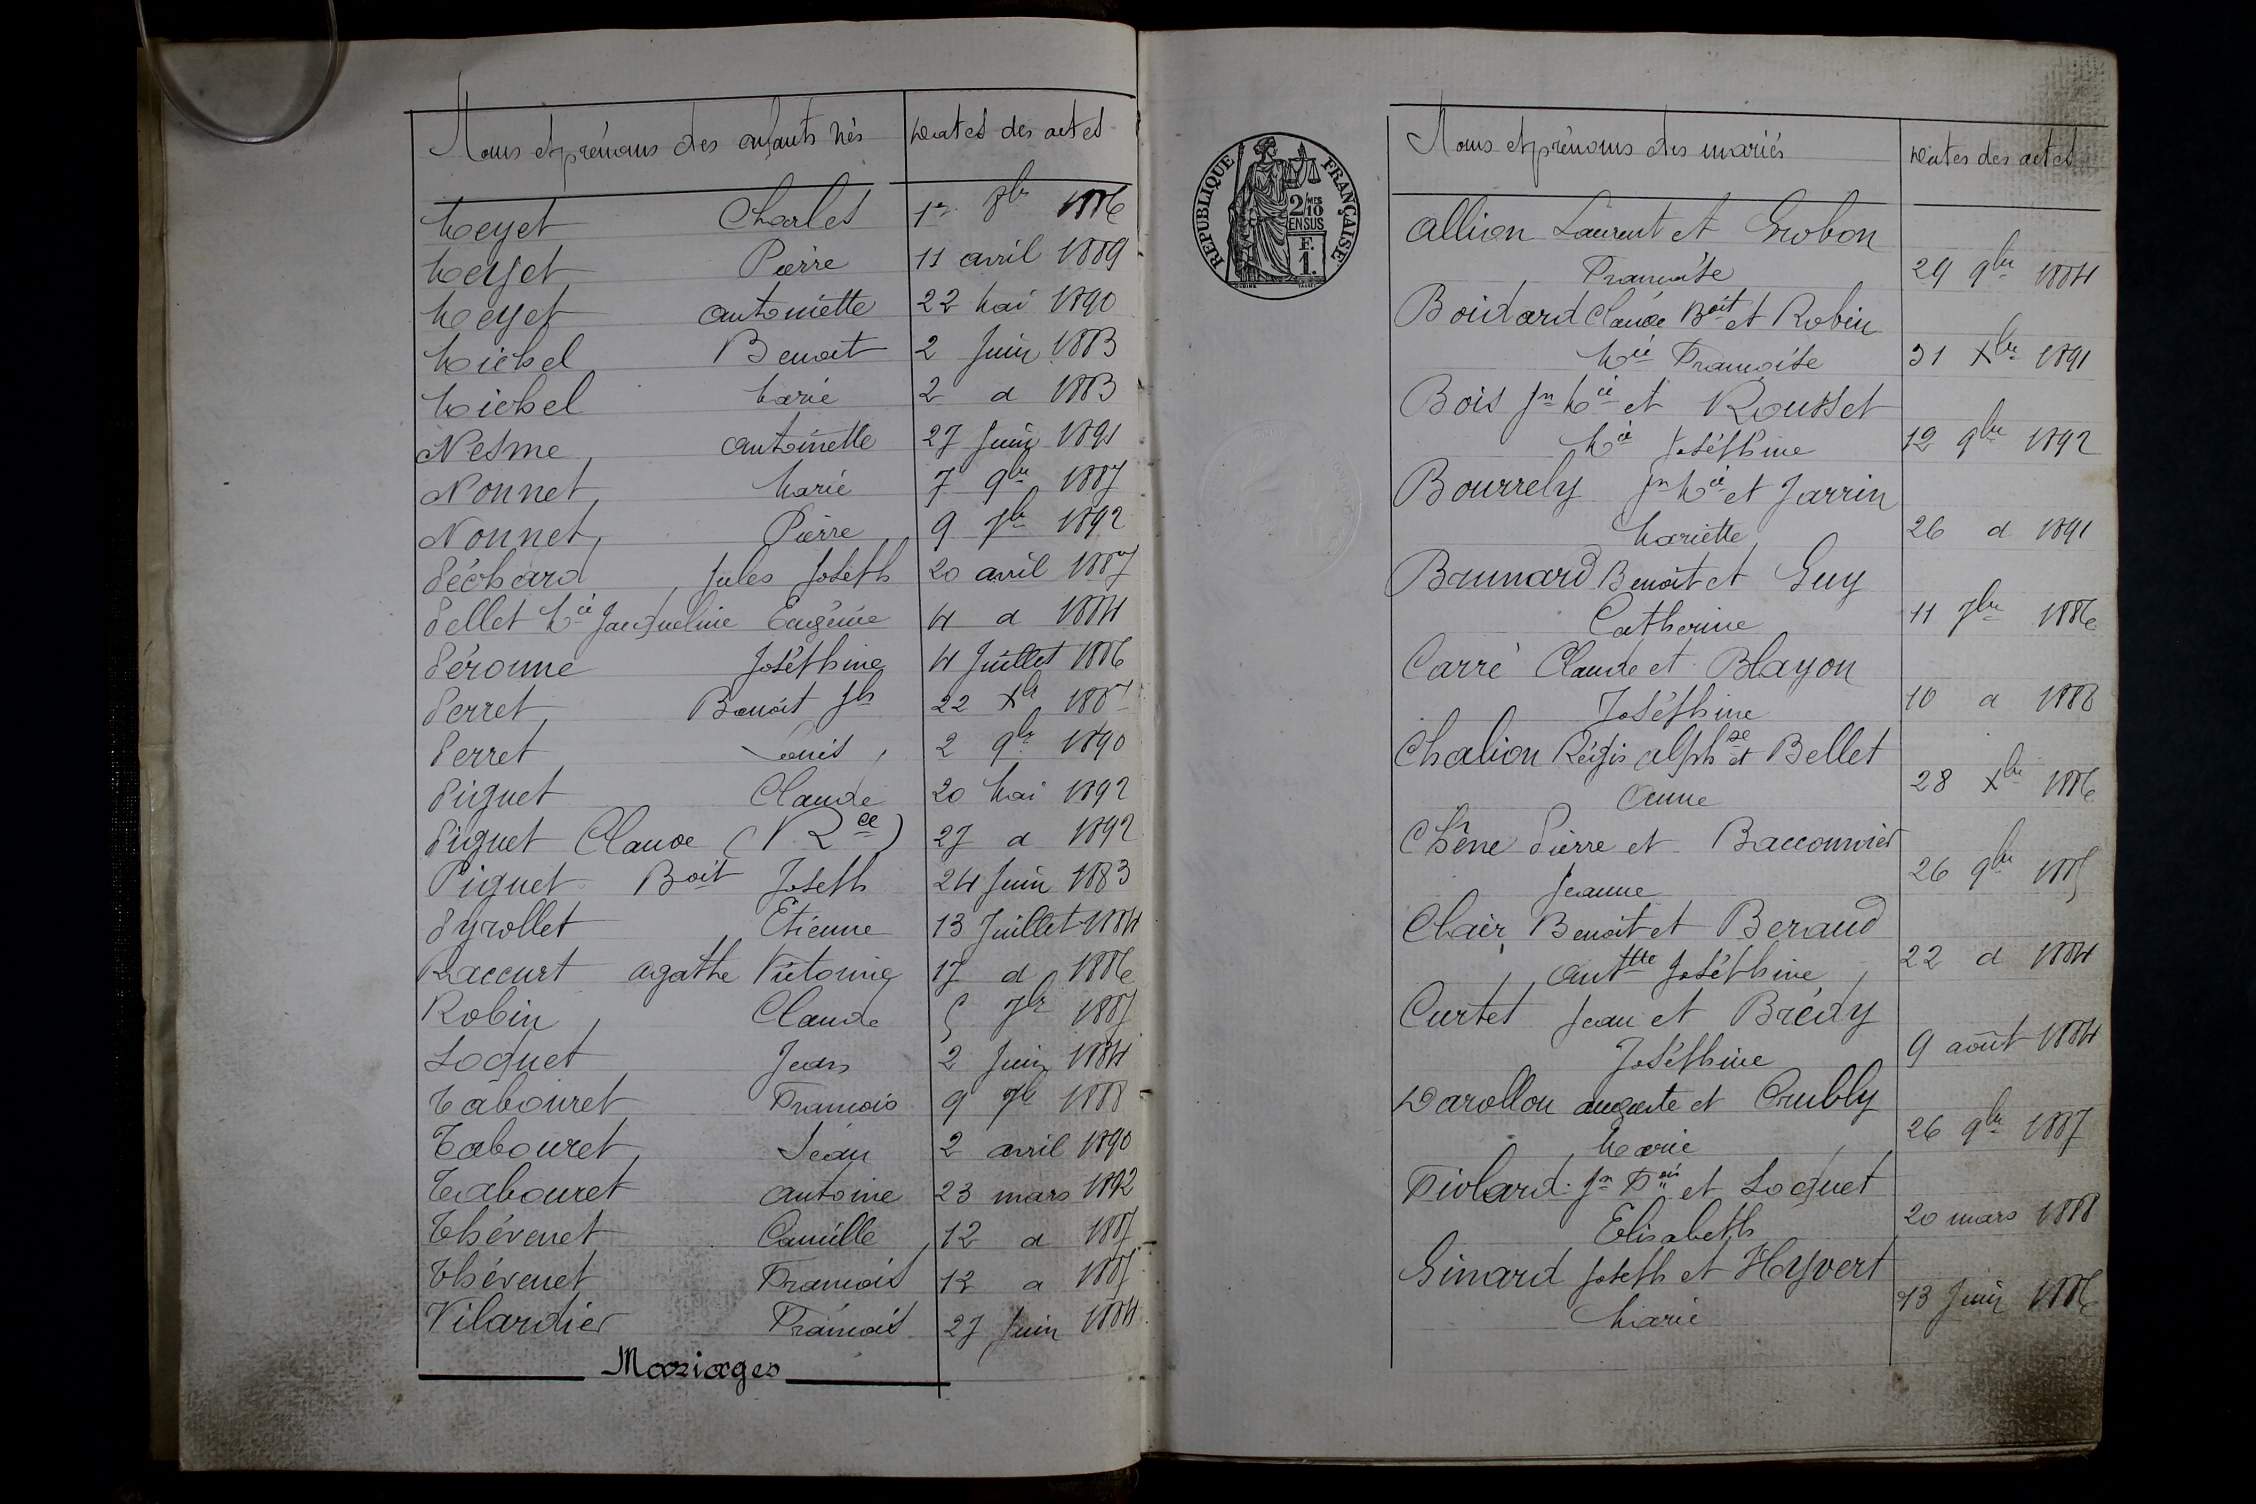 Noms et prénoms des enfants nés Dates des actes
Meyet Charles 1er 8bre 1886
Meyet Pierre 11 avril 1889
Meyet Antoinette 22 Mai 1890
Michel Benoit 2 Juin 1883
Michel Marie 2 d 1883
Nesme Antoinette 27 Juin 1891
Nonnet Marie 7 9bre 1887
Nonnet Pierre 9 7bre 1892
Péchard Jules Joseph 20 avril 1887
Pellet Mie Jacqueline Eugénie 4 d 1884
Péronne Joséphine 4 Juillet 1886
Perret Benoit Jh 22 Xbre
Perret Louis 2 9bre 1890
Piguet Claude 20 Mai 1892
Piguet Claude (N Rce) 27 d 1892
Piguet Boit Joseph 24 Juin 1883
Pyrollet Étienne 13 Juillet 1884
Raccurt Agathe Victorine 17 d 1886
Robin Claude 5 7bre 1885
Soquet Jean 2 Juin 1884
Tabouret François 9 7bre 1888
Tabouret Jean 2 avril 1890
Tabouret Antoine 23 mars 1892
Thévenet Camille 12 d 1885
Thévenet François 12 d 1885
Vilardier François 27 Juin 1884
Mariages
RÉPUBLIQUE FRANÇAISE
2/10 MES
EN SUS
F.
1.
Noms et prénoms des mariés Dates des actes
Allion Laurent et Grobon
Françoise 29 9bre 1884
Boidard Claude Boit et Robin
Mie Françoise 31 Xbre 1891
Bois Jn Mie et Rousset
Mie Joséphine 12 9bre 1892
Bourrely Jn Mie et Jarrin
Mariette 26 d 1891
Brunnard Benoit et Guy
Catherine 11 7bre 1886
Carré Claude et Blayon
Joséphine 10 d 1888
Chalion Régis Alphse et Bellet
Anne 28 Xbre 1886
Chêne Pierre et Bacconnier
Jeanne 26 9bre 1885
Clair Benoit et Beraud
Anttte Joséphine 22 d 1884
Curtet Jean et Brédy
Joséphine 9 août 1884
Darollon Auguste et Crubly
Marie 26 9bre 1887
Fiolard Jn Fois et Soquet
Elisabeth 20 mars 1888
Ginard Joseph et Hyvert
Marie 13 Juin 1886